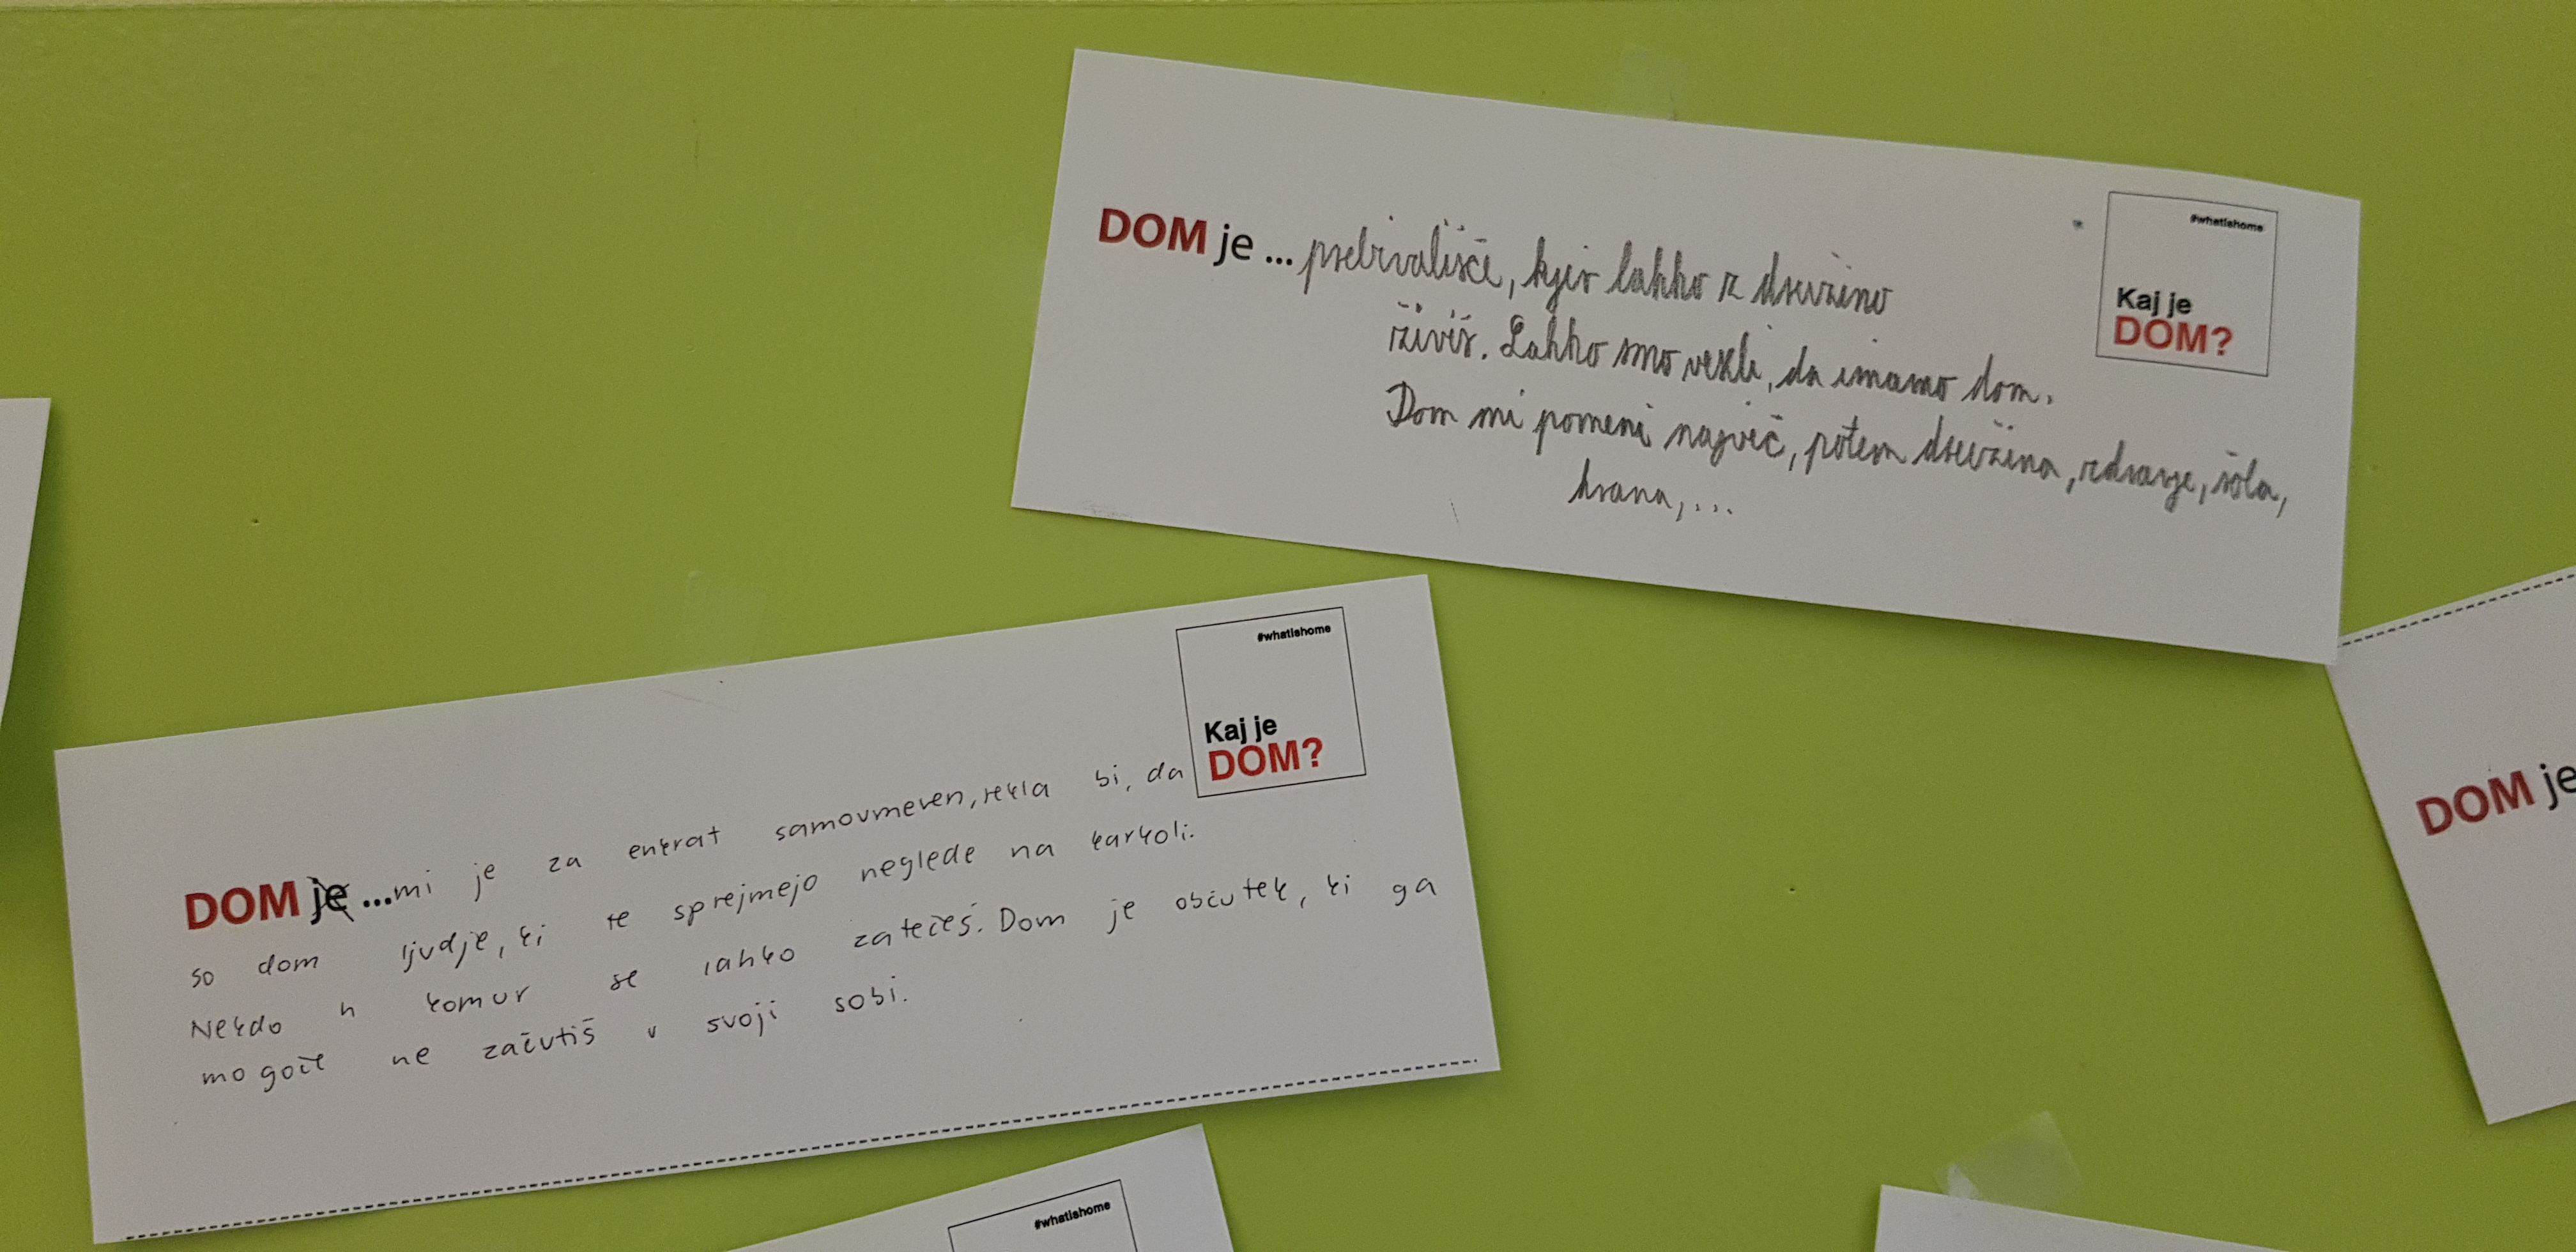 #whatishome
Kaj je
DOM?
DOM je ... prebivališče, kjer lahko z družino
živiš. Lahko smo veseli, da imamo dom.
Dom mi pomeni največ, potem družina, zdravje, šola,
hrana, ...
#whatishome
Kaj je
DOM?
DOM je ... mi je za enkrat samoumeven, rekla bi, da
so dom ljudje, ki te sprejmejo neglede na karkoli.
Nekdo h komur se lahko zatečeš. Dom je občutek, ki ga
mogoče ne začutiš v svoji sobi.
DOM je
#whatishome